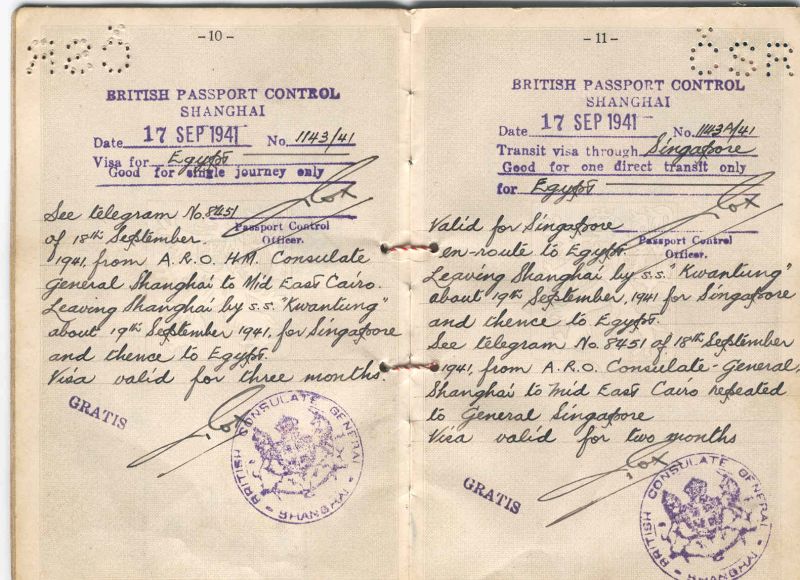 -10-
BRITISH PASSPORT CONTROL
SHANGHAI
Date 17 SEP 1941 No. 1143/41
Visa for Egypt
Good for single journey only
Cox
See telegram No. 8451
Passport Control
Officer.
of 18th September
1941, from A.R.O. H.M. Consulate
General Shanghai to Mid East Cairo.
Leaving Shanghai by s.s. "Kwantung"
about 19th September 1941, for Singapore
and thence to Egypt.
Visa valid for three months.
GRATIS
Cox
BRITISH CONSULATE GENERAL
- SHANGHAI -
-11-
ČSR
BRITISH PASSPORT CONTROL
SHANGHAI
Date 17 SEP 1941 No. 1143A/41
Transit visa through Singapore
Good for one direct transit only
for Egypt
Cox
Valid for Singapore
Passport Control
Officer.
en-route to Egypt.
Leaving Shanghai by s.s. "Kwantung"
about 19th September, 1941 for Singapore
and thence to Egypt.
See telegram No. 8451 of 18th September
1941, from A.R.O. Consulate-General,
Shanghai to Mid East Cairo repeated
to General Singapore
Visa valid for two months
GRATIS
Cox
BRITISH CONSULATE GENERAL
SHANGHAI